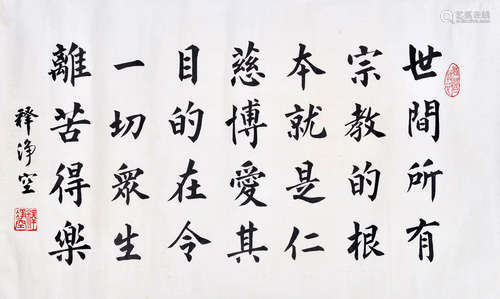 世間所有
宗教的根
本就是仁
慈博愛其
目的在令
一切眾生
離苦得樂
釋淨空